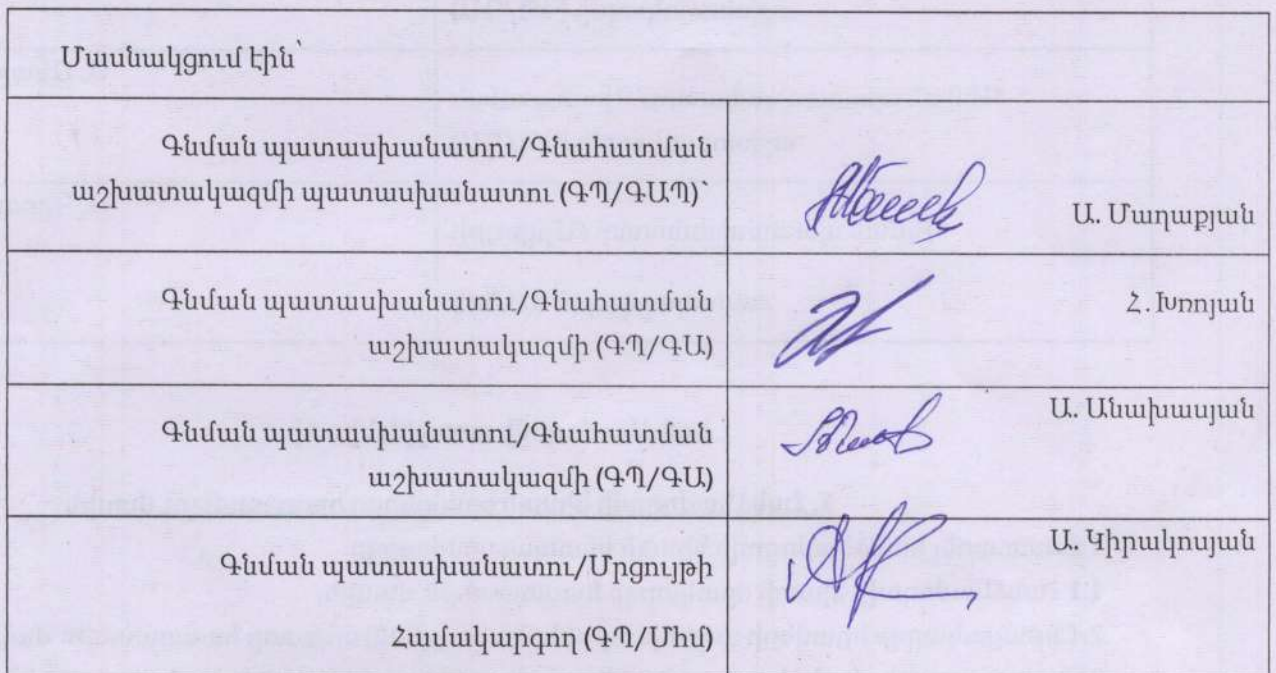 Մասնակցում էին՝
Գնման պատասխանատու/Գնահատման
աշխատակազմի պատասխանատու (ԳՊ/ԳԱՊ)՝
Ա. Մաղաքյան
Գնման պատասխանատու/Գնահատման
աշխատակազմի (ԳՊ/ԳԱ)
Հ. Խռոյան
Գնման պատասխանատու/Գնահատման
աշխատակազմի (ԳՊ/ԳԱ)
Ա. Անախասյան
Գնման պատասխանատու/Մրցույթի
Համակարգող (ԳՊ/Մհմ)
Ա. Կիրակոսյան